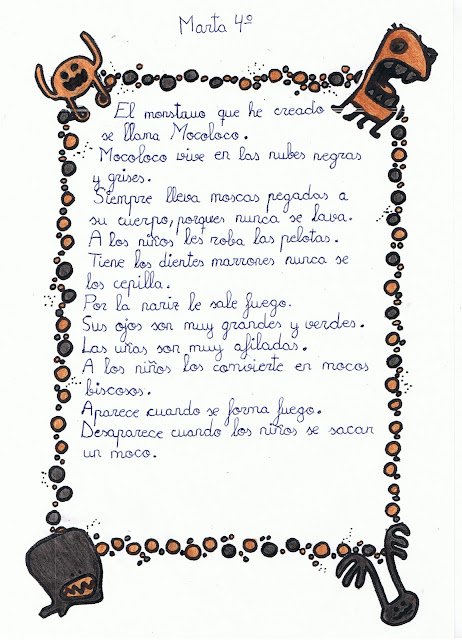 Marta 4º
El monstruo que he creado
se llama Mocoloco.
Mocoloco vive en las nubes negras
y grises.
Siempre lleva moscas pegadas a
su cuerpo, porques nunca se lava.
A los niños les roba las pelotas.
Tiene los dientes marrones nunca se
los cepilla.
Por la nariz le sale fuego.
Sus ojos son muy grandes y verdes.
Las uñas son muy afiladas.
A los niños los convierte en mocos
biscosos.
Aparece cuando se forma fuego.
Desaparece cuando los niños se sacan
un moco.